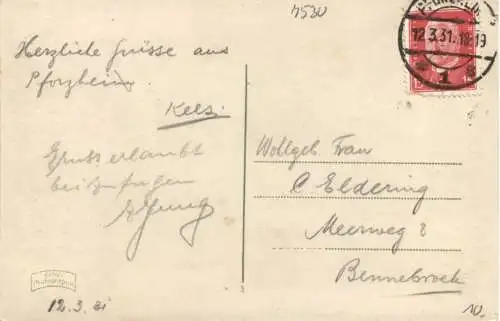 4530
Herzliche Grüsse aus
Pforzheim.
Kees.
Gruss erlaubt
beizufügen
A Jung
12.3.31
12.3.31.18-19
* 1 *
Wollgeb. Frau
C Eldering
Meerweg 8
Bennebroek
10.